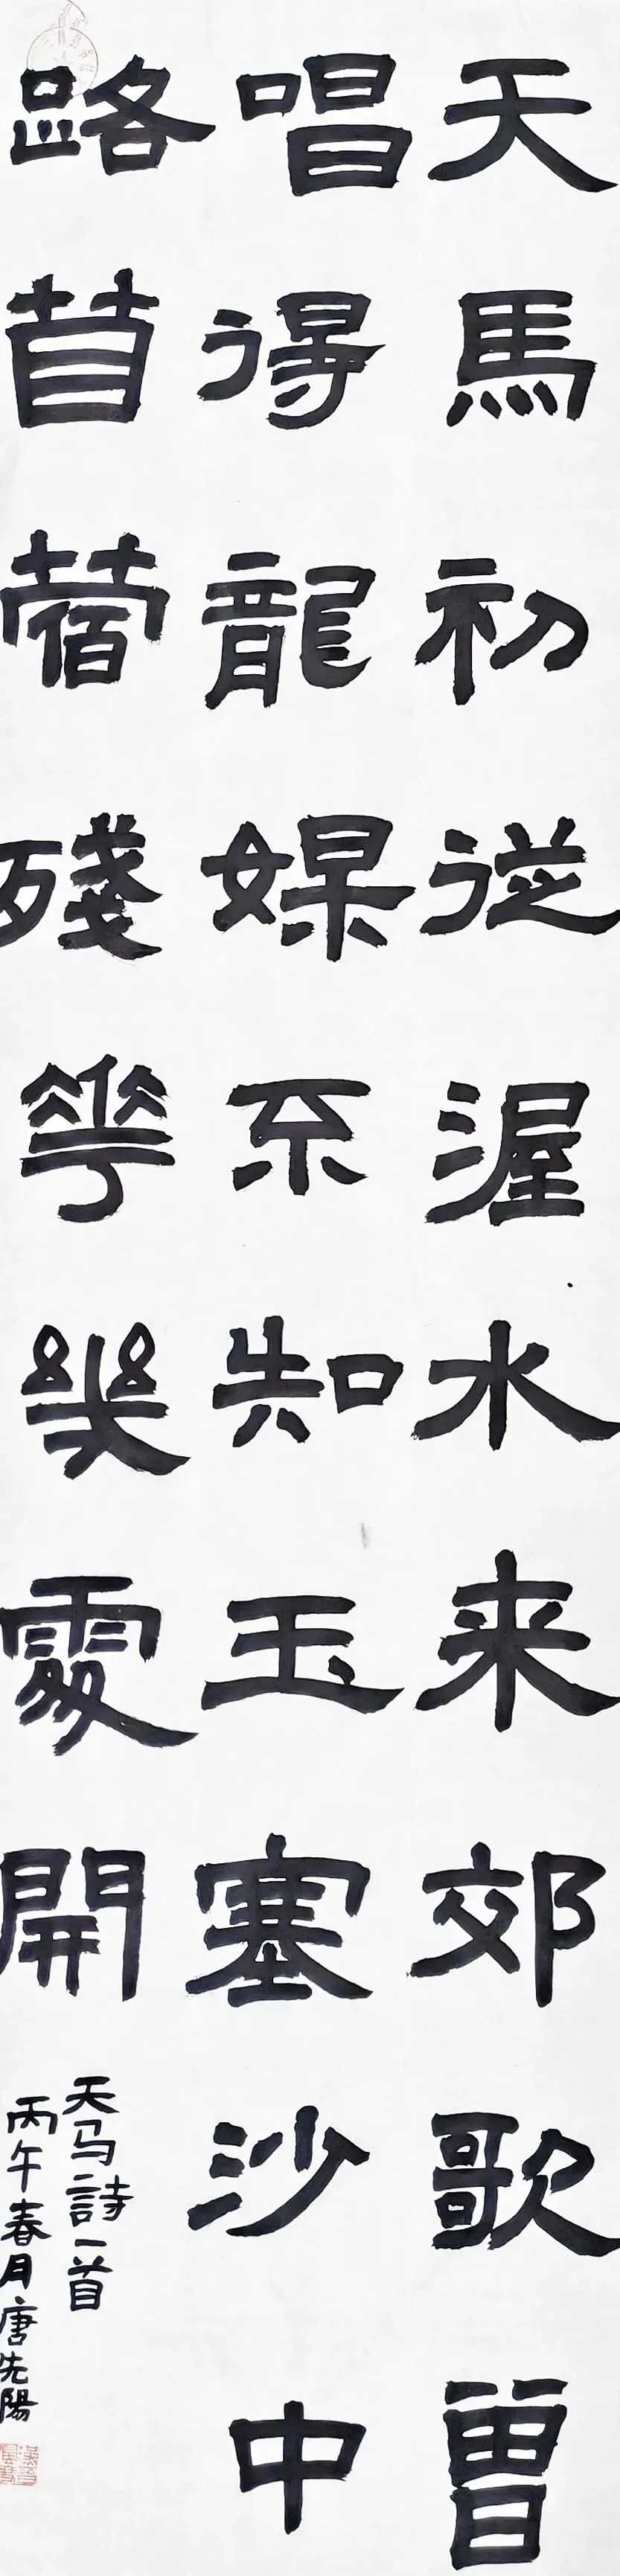 天馬初從渥水来郊歌曽
唱得龍媒不知玉塞沙中
路苜蓿殘華幾處開
天马詩一首
丙午春月唐先陽